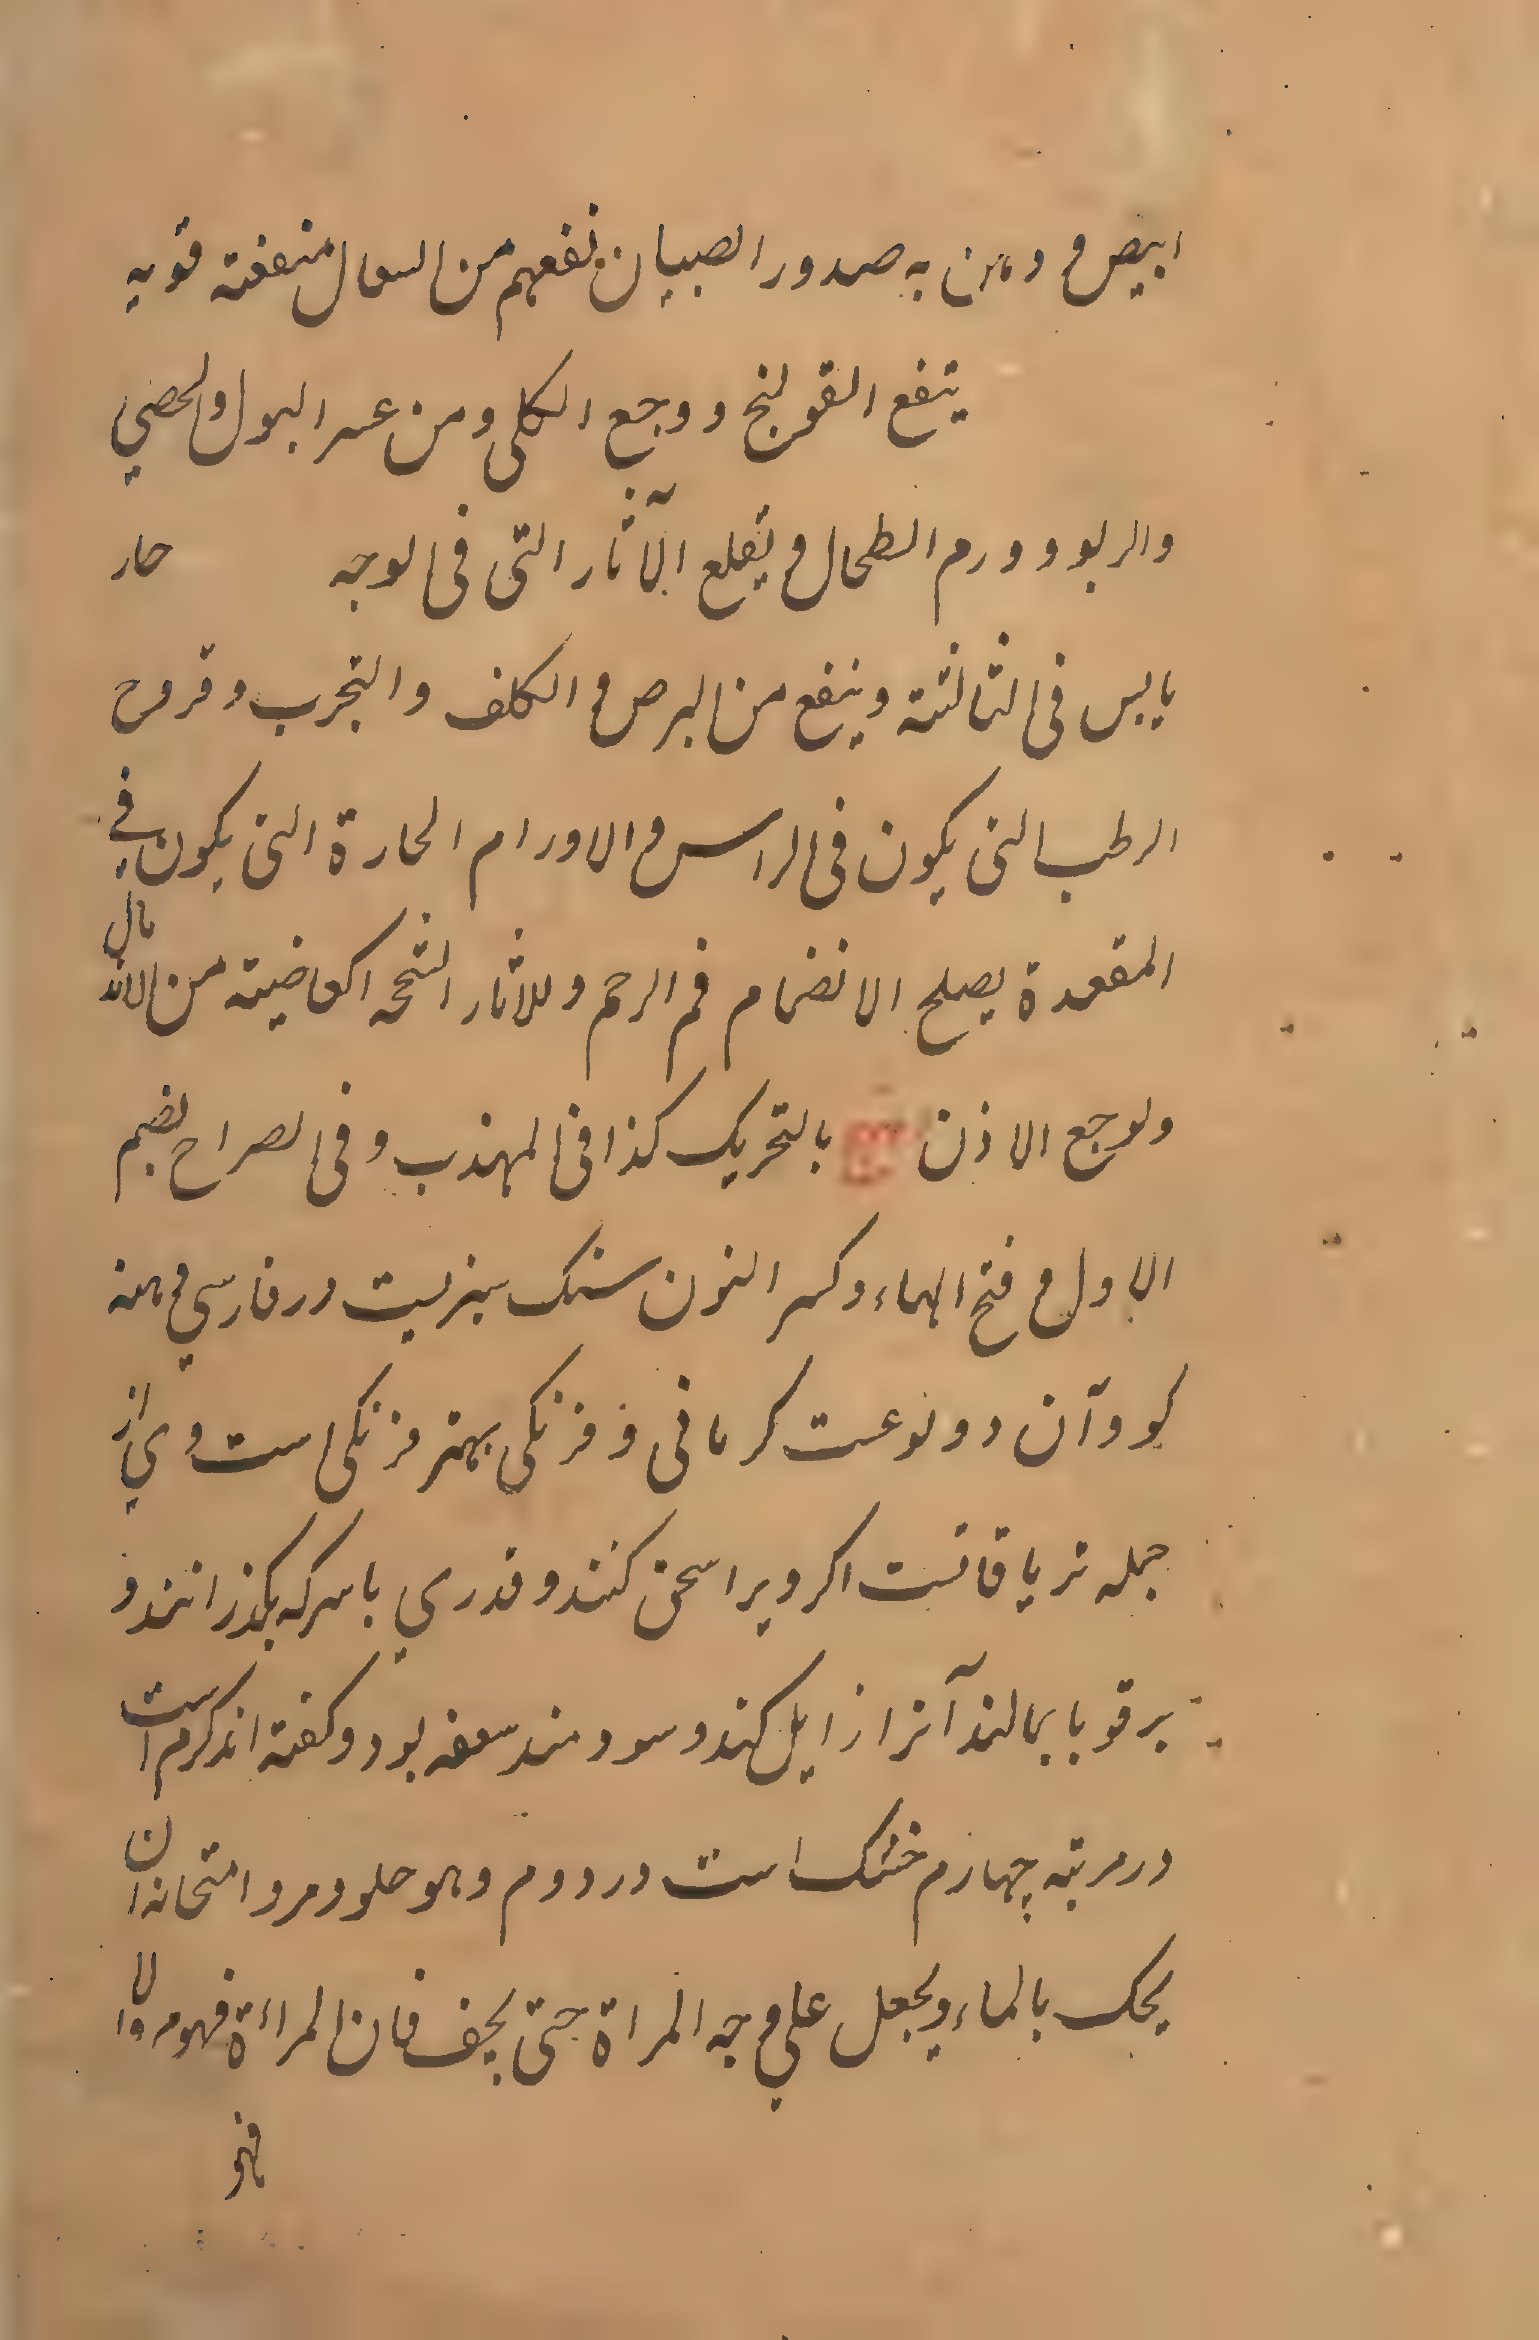 ابیض و دهن به صدور الصبیان نفعهم من السعال منفعة قویه
ینفع القولنج و وجع الکلی و من عسر البول والحصی
والربو و ورم الطحال و یقلع الآثار التی فی الوجه حار
یابس فی الثالثة و ینفع من البرص و الکلف والجرب و قروح
الرطب التی یکون فی الراس و الاورام الحارة التی یکون فی
المقعدة یصلح الانضمام فم الرحم و للاثار من الاندمال
ولوجع الاذن بالتحریک کذا فی المهذب و فی الصراح بضم
الاول و فتح الهاء و کسر النون سنک سبزیست در فارسی دهنه
کو و آن دو نوعست کرمانی و فرنکی بهتر فرنکی است وی از
جمله تریاقاتست اکر ویرا سحق کنند و قدری با سرکه بکذرانند و
بر قوبا بمالند آنرا زایل کند و سودمند سعفه بود و کفته اند کرم است
در مرتبه چهارم خشک است در دوم و هو حلو و مر و امتحانه ان
یحک بالماء و یجعل علی وجه المراة حتی یجف فان المراءة فهو مر والا
فهو